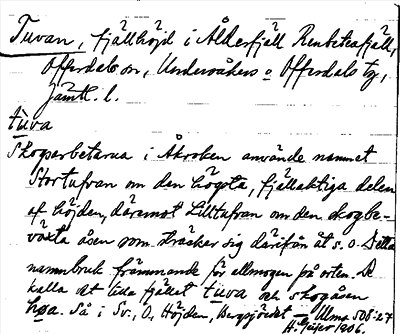 Tuvan, fjällhöjd i Ålderfjäll Renbetesfjäll,
Offerdals sn, Undersåkers o Offerdals tg,
Jämtl. l.
tuva
Skogsarbetarna i Åkroken använde namnet
Stortufvan om den högsta, fjällaktiga delen
af höjden, däremot Lilltufvan om den skogbe-
växta åsen som sträcker sig därifrån åt s.o. Detta
namnbruk främmande för allmogen på orten. De
kalla det lilla fjället tuva och skogåsen
høa. Så i Sv., O, Höjden, Bergsjöedet — Ulma 508:27
H. Geijer 1906.